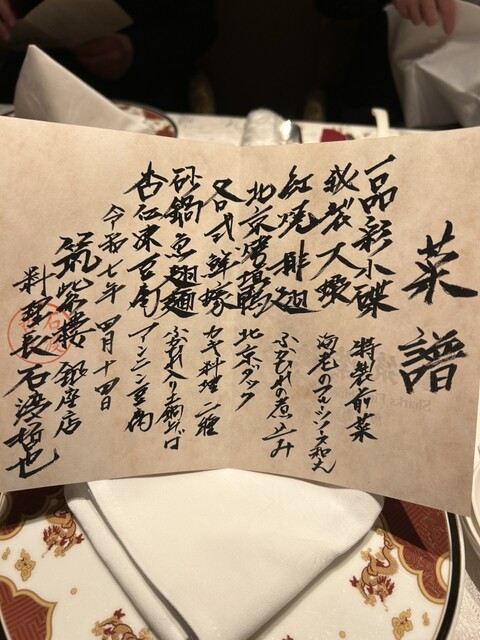 菜譜
一品彩小碟 特製前菜
秘製大蝦 海老のマヨソース和え
紅燒排翅 ふかひれの煮込み
北京烤填鴨 北京ダック
各式鮮蠔 カキ料理二種
砂鍋魚翅麺 ふかひれ入り土鍋そば
杏仁凍豆腐 アンニン豆腐
令和七年 四月十四日
筑紫樓 銀座店
料理長 石湾哲也